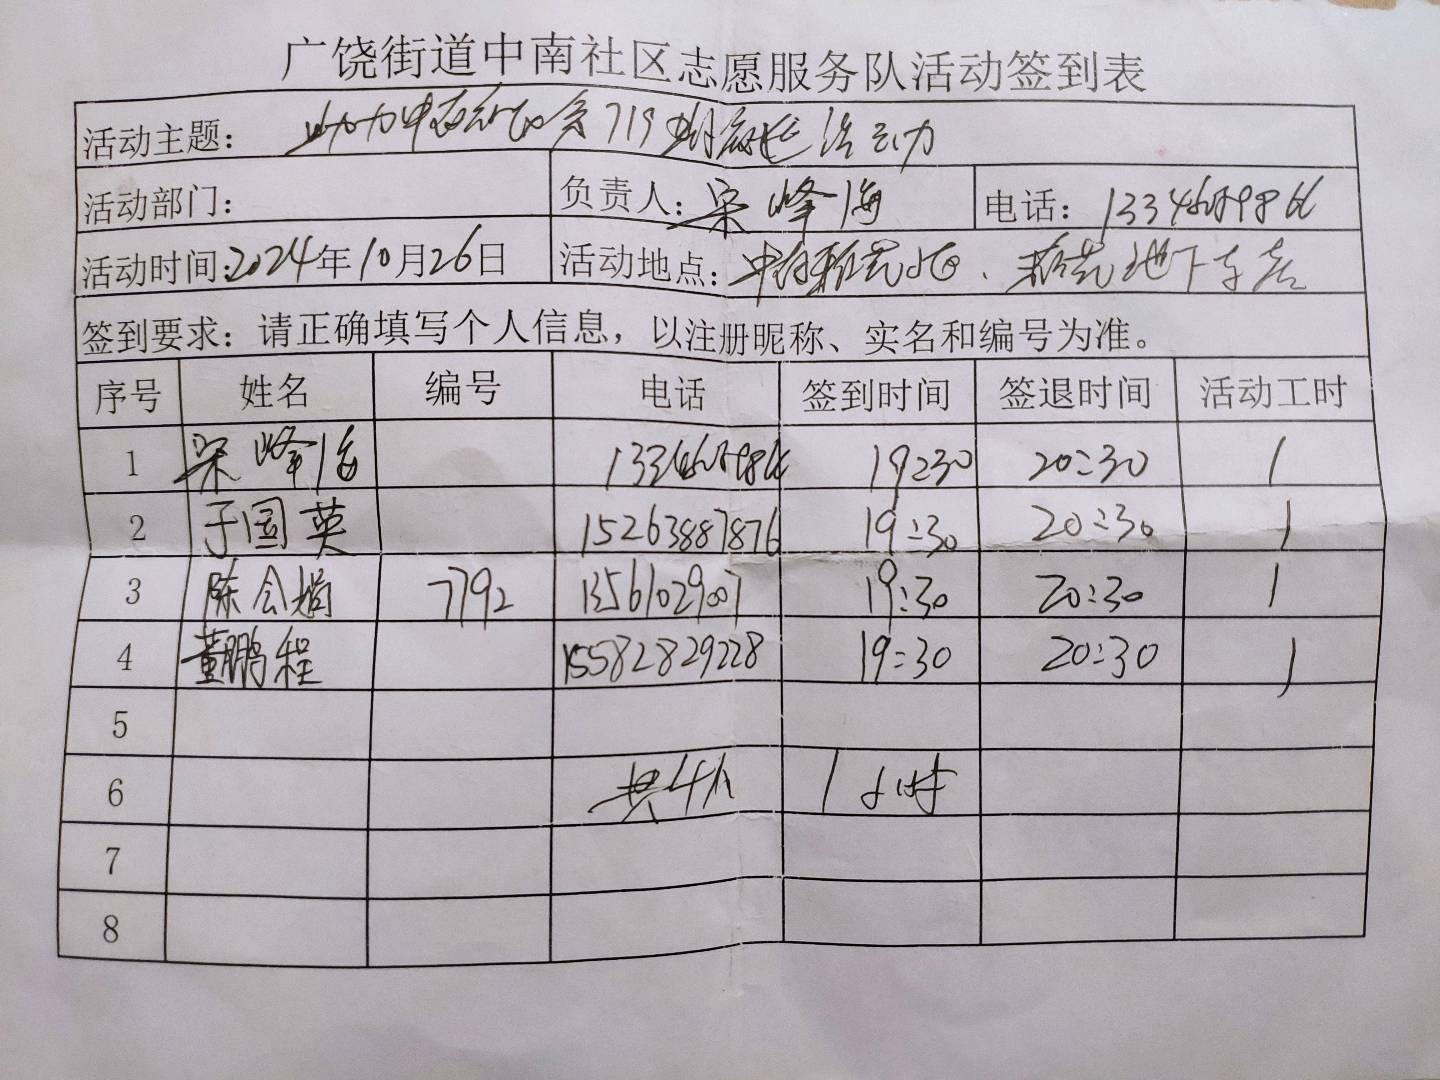 广饶街道中南社区志愿服务队活动签到表
活动主题： 助力中 719 活动
活动部门： 负责人：宋峰海 电话：
活动时间：2024年10月26日 活动地点： 地下车库
签到要求：请正确填写个人信息，以注册昵称、实名和编号为准。
序号 姓名 编号 电话 签到时间 签退时间 活动工时
1 宋峰海 19:30 20:30 1
2 于国英 15263887876 19:30 20:30 1
3 陈会娟 7792 13561029007 19:30 20:30 1
4 董鹏程 15582829228 19:30 20:30 1
5
6 共4人 1小时
7
8